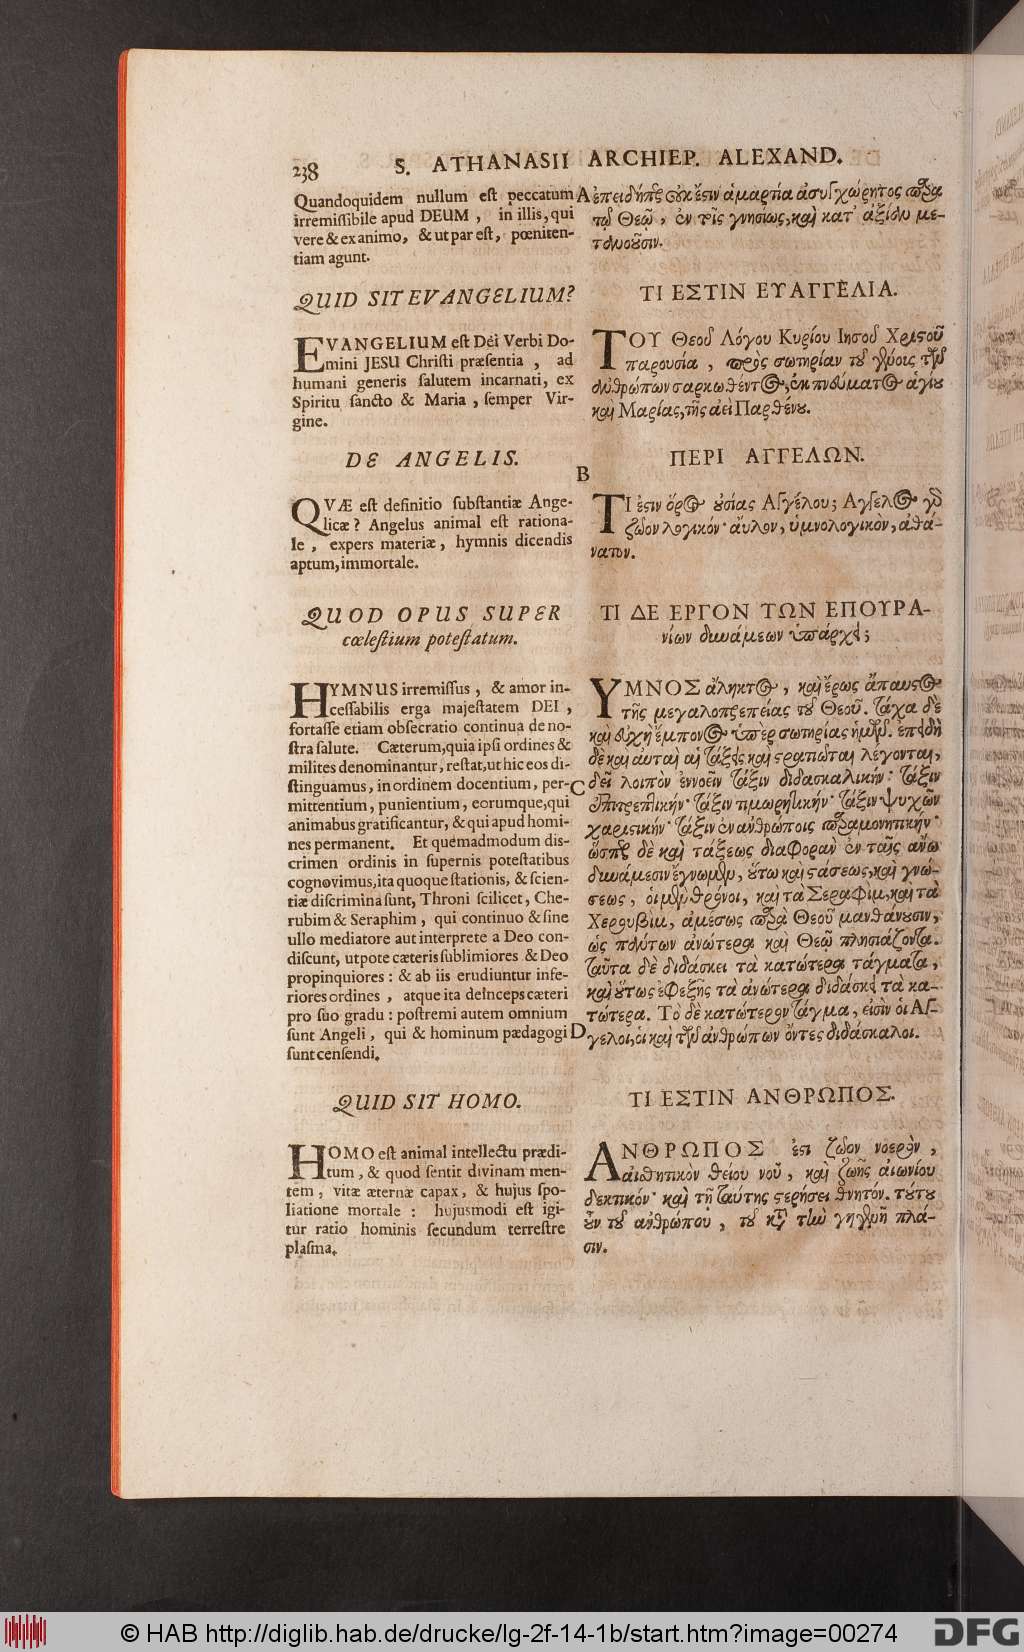 238 S. ATHANASII ARCHIEP. ALEXAND.
Quandoquidem nullum est peccatum
irremissibile apud DEUM, in illis, qui
vere & ex animo, & ut par est, pœniten-
tiam agunt.
QUID SIT EVANGELIUM?
EVANGELIUM est Dei Verbi Do-
mini JESU Christi præsentia, ad
humani generis salutem incarnati, ex
Spiritu sancto & Maria, semper Vir-
gine.
DE ANGELIS.
QVÆ est definitio substantiæ Ange-
licæ? Angelus animal est rationa-
le, expers materiæ, hymnis dicendis
aptum, immortale.
QUOD OPUS SUPER
cœlestium potestatum.
HYMNUS irremissus, & amor in-
cessabilis erga majestatem DEI,
fortasse etiam obsecratio continua de no-
stra salute. Cæterum, quia ipsi ordines &
milites denominantur, restat, ut hic eos di-
stinguamus, in ordinem docentium, per-
mittentium, punientium, eorumque, qui
animabus gratificantur, & qui apud homi-
nes permanent. Et quemadmodum dis-
crimen ordinis in supernis potestatibus
cognovimus, ita quoque stationis, & scien-
tiæ discrimina sunt, Throni scilicet, Che-
rubim & Seraphim, qui continuo & sine
ullo mediatore aut interprete a Deo con-
discunt, utpote cæteris sublimiores & Deo
propinquiores: & ab iis erudiuntur infe-
riores ordines, atque ita deinceps cæteri
pro suo gradu: postremi autem omnium
sunt Angeli, qui & hominum pædagogi
sunt censendi.
QUID SIT HOMO.
HOMO est animal intellectu prædi-
tum, & quod sentit divinam men-
tem, vitæ æternæ capax, & hujus spo-
liatione mortale: hujusmodi est igi-
tur ratio hominis secundum terrestre
plasma.
A
B
C
D
ἐπειδήπερ οὐκ ἔστιν ἁμαρτία ἀσυγχώρητος παρὰ
τῷ Θεῷ, ἐν τοῖς γνησίως, καὶ κατ' ἀξίαν με-
τανοοῦσιν.
ΤΙ ΕΣΤΙΝ ΕΥΑΓΓΕΛΙΑ.
ΤΟΥ Θεοῦ Λόγου Κυρίου Ιησοῦ Χριστοῦ
παρουσία, πρὸς σωτηρίαν τοῦ γένους τῶν
ἀνθρώπων σαρκωθέντος, ἐκ πνεύματος ἁγίου
καὶ Μαρίας, τῆς ἀεὶ Παρθένου.
ΠΕΡΙ ΑΓΓΕΛΩΝ.
ΤΙ ἐστιν ὅρος οὐσίας Αγγέλου; Αγγελος γὸ
ζῶον λογικόν· ἄϋλον, ὑμνολογικὸν, ἀθά-
νατον.
ΤΙ ΔΕ ΕΡΓΟΝ ΤΩΝ ΕΠΟΥΡΑ-
νίων δυνάμεων ὑπάρχει;
ΥΜΝΟΣ ἄληκτος, καὶ ἔρως ἄπαυστος
τῆς μεγαλοπρεπείας τοῦ Θεοῦ. τάχα δὲ
καὶ εὐχὴ ἔμπονος ὑπὲρ σωτηρίας ἡμῶν. ἐπειδὴ
δὲ καὶ αὐταὶ αἱ τάξεις καὶ στρατιῶται λέγονται,
δεῖ λοιπὸν ἐννοεῖν τάξιν διδασκαλικήν· τάξιν
ἐπιτρεπτικήν· τάξιν τιμωρητικήν· τάξιν ψυχῶν
χαριστικήν· τάξιν ἐν ἀνθρώποις παραμονητικήν·
ὥσπερ δὲ καὶ τάξεως διαφορὰν ἐν ταῖς ἄνω
δυνάμεσιν ἔγνωμεν, οὕτω καὶ στάσεως, καὶ γνώ-
σεως, οἱ μὲν θρόνοι, καὶ τὰ Σεραφὶμ, καὶ τὰ
Χερουβὶμ, ἀμέσως παρὰ Θεοῦ μανθάνουσιν,
ὡς πάντων ἀνώτερα καὶ Θεῷ πλησιάζοντα.
ταῦτα δὲ διδάσκει τὰ κατώτερα τάγματα,
καὶ οὕτως ἐφεξῆς τὰ ἀνώτερα διδάσκει τὰ κα-
τώτερα. Τὸ δὲ κατώτερον τάγμα, εἰσὶν οἱ Αγ-
γελοι, οἱ καὶ τῶν ἀνθρώπων ὄντες διδάσκαλοι.
ΤΙ ΕΣΤΙΝ ΑΝΘΡΩΠΟΣ.
ΑΝΘΡΩΠΟΣ ἐστι ζῶον νοερὸν,
αἰσθητικὸν θείου νοῦ, καὶ ζωῆς αἰωνίου
δεκτικόν· καὶ τῇ ταύτης στερήσει θνητόν. τούτου
οὖν τοῦ ἀνθρώπου, τοῦ κατὰ τὴν γηγενῆ πλά-
σιν.
© HAB http://diglib.hab.de/drucke/lg-2f-14-1b/start.htm?image=00274
DFG